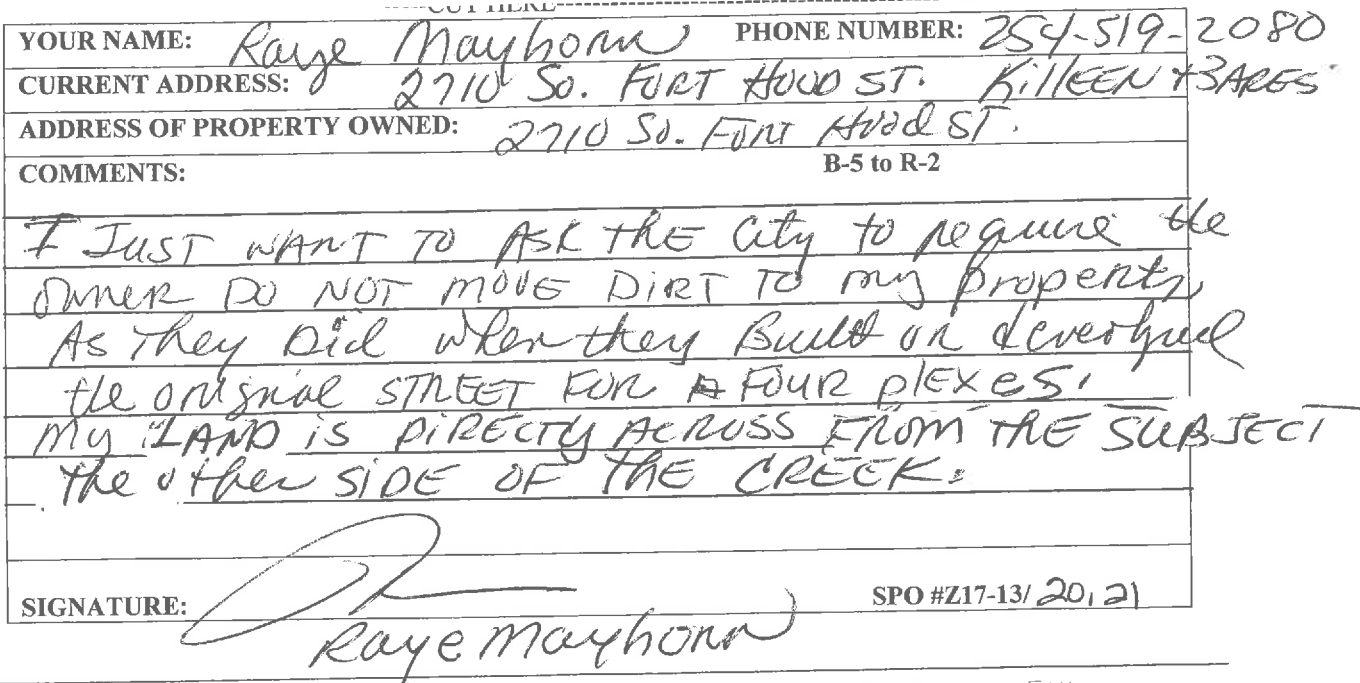 -----CUT HERE-----
YOUR NAME: Raye Mayhorn PHONE NUMBER: 254-519-2080
CURRENT ADDRESS: 2710 So. FORT HOOD ST. KillEEN
ADDRESS OF PROPERTY OWNED: 2710 So. FORT Hood ST.
COMMENTS: B-5 to R-2
I JUST WANT TO ASK THE City to require the
OWNER DO NOT MOVE DIRT TO my property,
As They Did when they Built or
the original STREET FOR A FOUR plEXES.
my LAND is DIRECTLY ACROSS FROM THE SUBJECT
The other SIDE OF THE CREEK.
SIGNATURE: SPO #Z17-13/ 20, 21
Raye Mayhorn